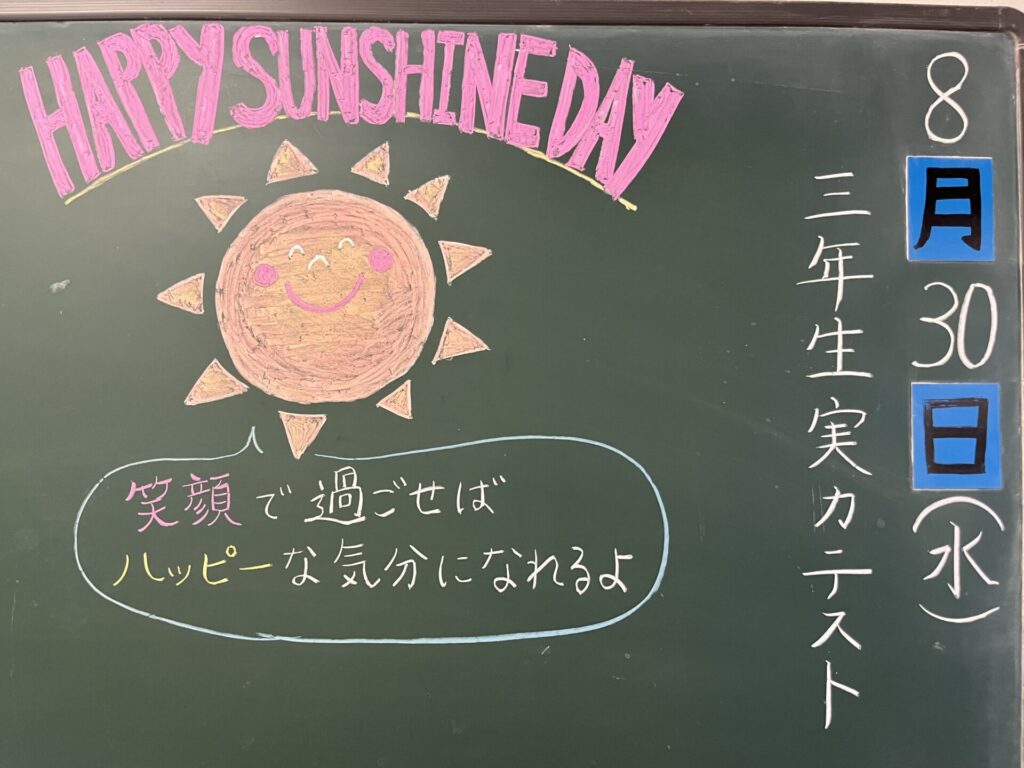 HAPPY SUNSHINE DAY
8月30日(水)
三年生実力テスト
笑顔で過ごせば
ハッピーな気分になれるよ